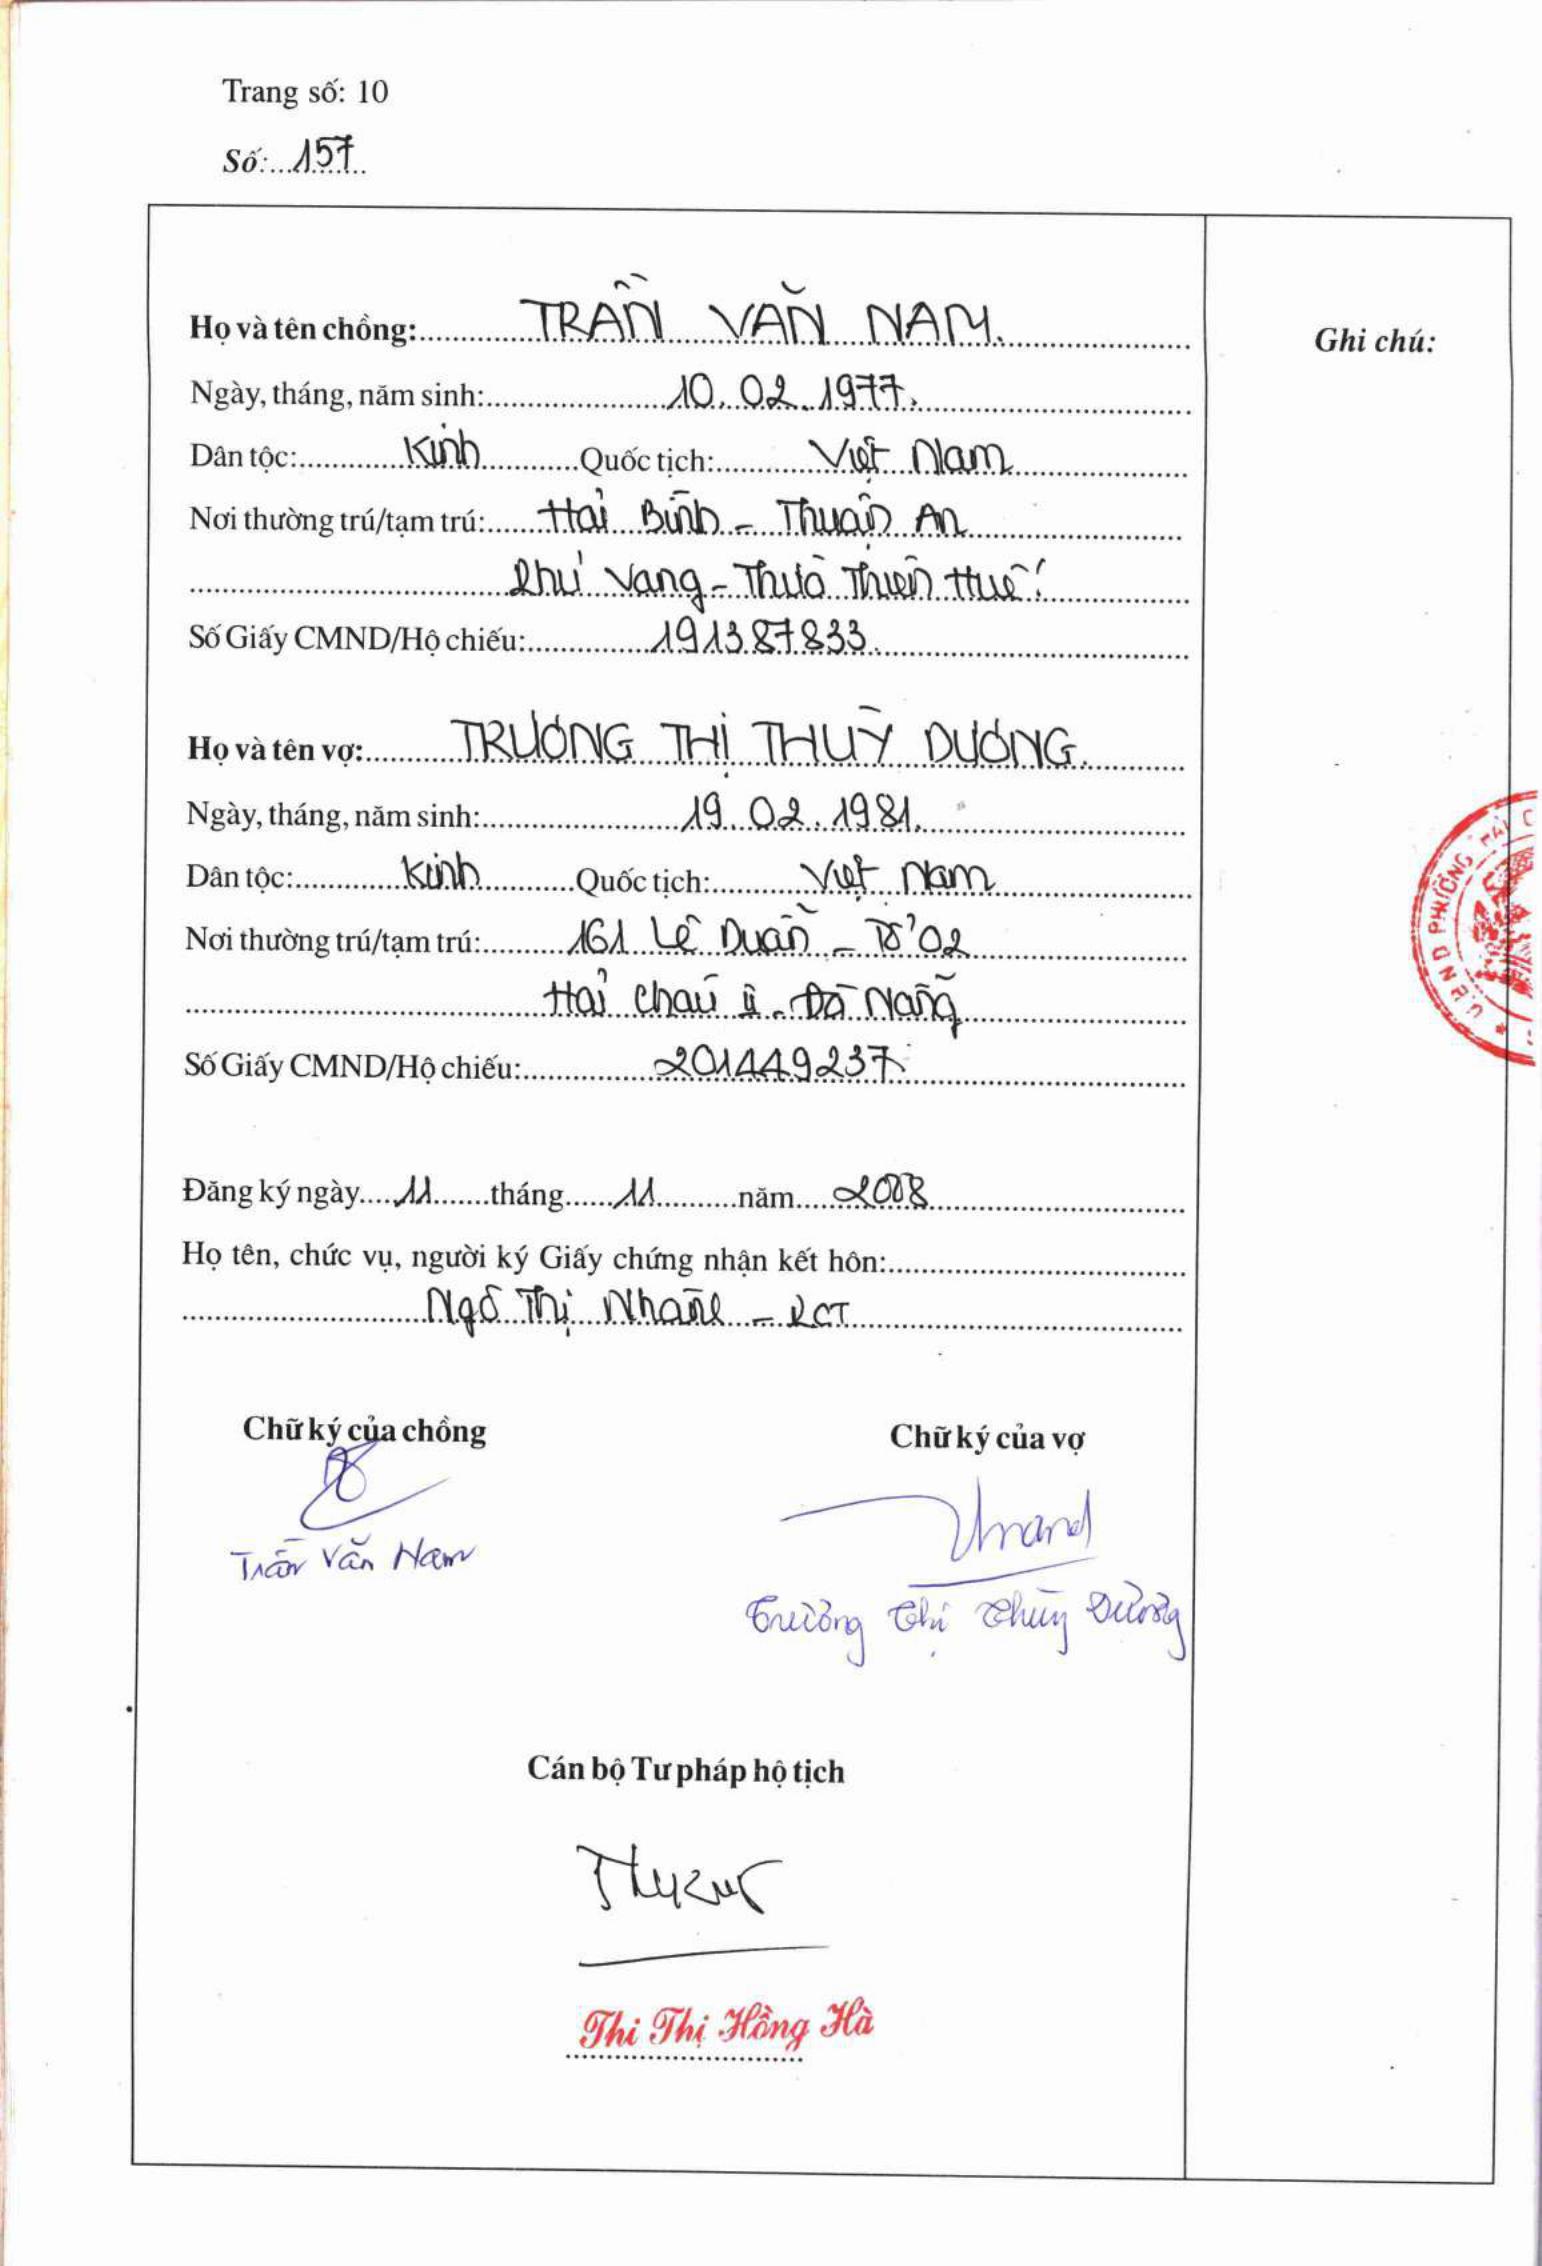 Trang số: 10
Số: 157
Họ và tên chồng: TRẦN VĂN NAM.
Ghi chú:
Ngày, tháng, năm sinh: 10.02.1977.
Dân tộc: Kinh Quốc tịch: Việt Nam
Nơi thường trú/tạm trú: Hải Bình - Thuận An
Phú Vang - Thừa Thiên Huế.
Số Giấy CMND/Hộ chiếu: 191387833.
Họ và tên vợ: TRƯƠNG THỊ THUỲ DƯƠNG.
Ngày, tháng, năm sinh: 19.02.1981.
Dân tộc: Kinh Quốc tịch: Việt Nam
Nơi thường trú/tạm trú: 161 Lê Duẩn - Tổ 02
Hải Châu II - Đà Nẵng
Số Giấy CMND/Hộ chiếu: 201449237
U.B.N.D PHƯỜNG HẢI C
Đăng ký ngày 11 tháng 11 năm 2008
Họ tên, chức vụ, người ký Giấy chứng nhận kết hôn:
Ngô Thị Nhanh - PCT
Chữ ký của chồng Chữ ký của vợ
Trần Văn Nam
Trương Thị Thùy Dương
Cán bộ Tư pháp hộ tịch
Thi Thị Hồng Hà